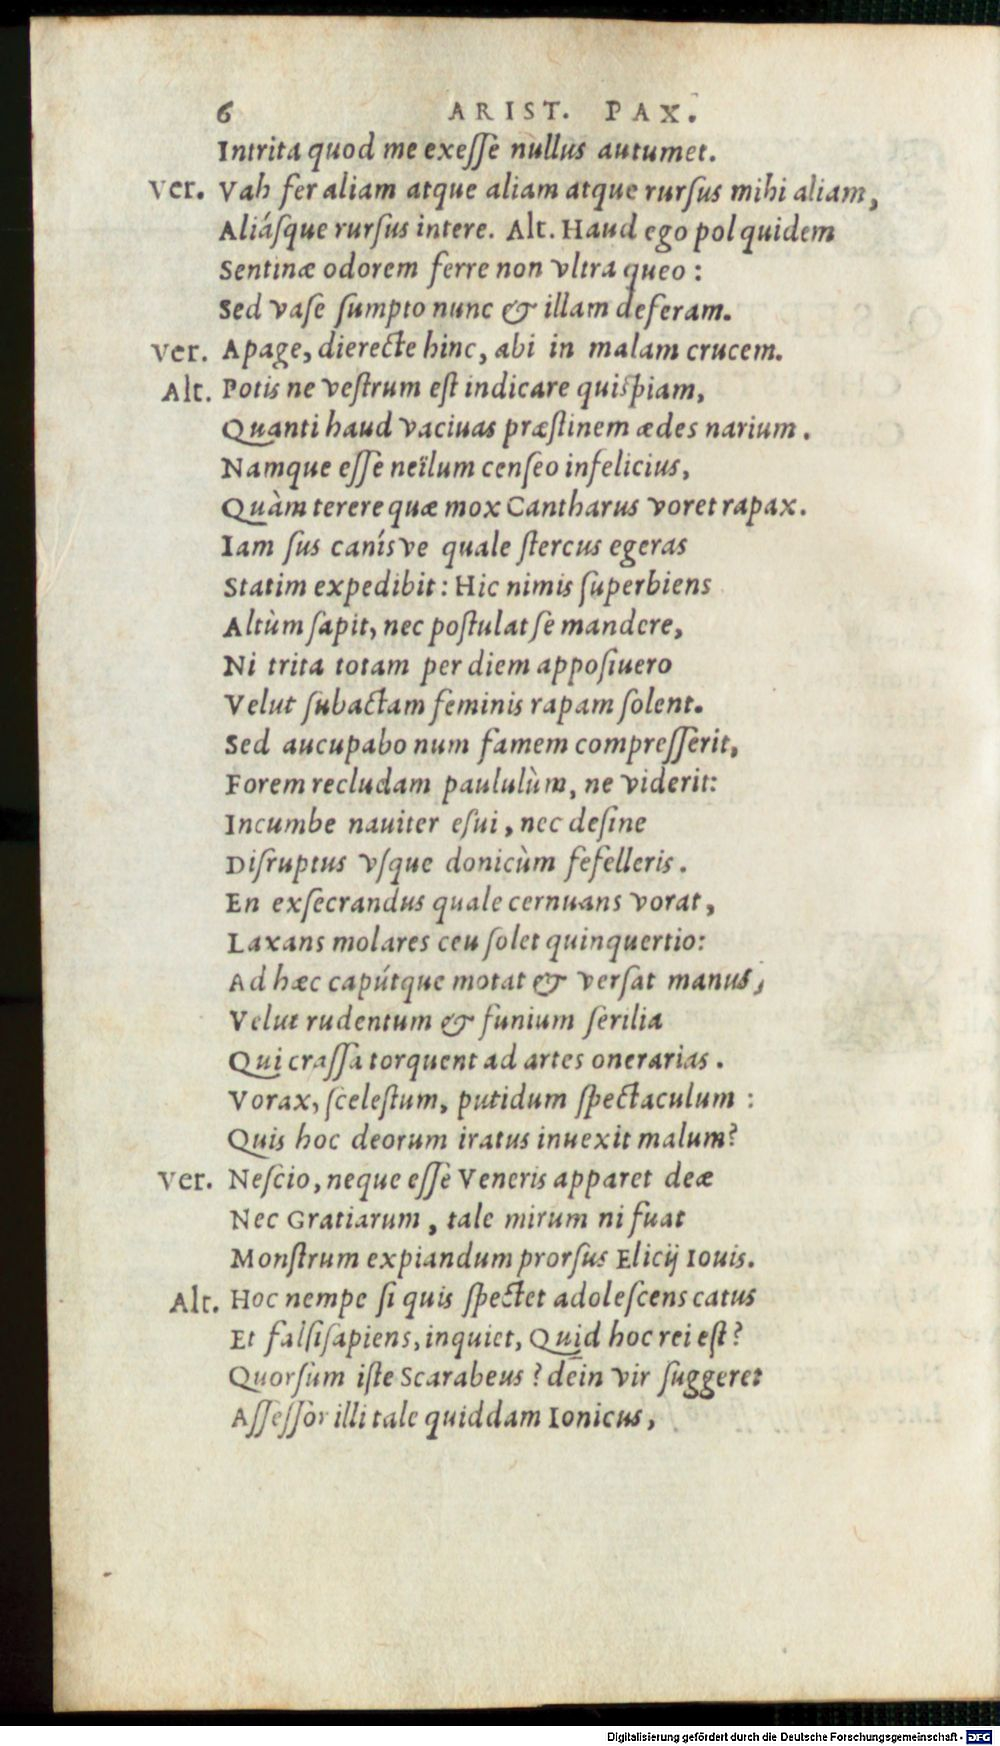 6 ARIST. PAX.
Intrita quod me exeſſe nullus autumet.
Ver. Vah fer aliam atque aliam atque rurſus mihi aliam,
Aliáſque rurſus intere. Alt. Haud ego pol quidem
Sentinæ odorem ferre non vltra queo:
Sed vaſe ſumpto nunc & illam deferam.
Ver. Apage, dierecte hinc, abi in malam crucem.
Alt. Potis ne veſtrum eſt indicare quiſpiam,
Quanti haud vaciuas præſtinem ædes narium.
Namque eſſe neïlum cenſeo infelicius,
Quàm terere quæ mox Cantharus voret rapax.
Iam ſus canísve quale ſtercus egeras
Statim expedibit: Hic nimis ſuperbiens
Altùm ſapit, nec poſtulat ſe mandere,
Ni trita totam per diem appoſiuero
Velut ſubactam feminis rapam ſolent.
Sed aucupabo num famem compreſſerit,
Forem recludam paululùm, ne viderit:
Incumbe nauiter eſui, nec deſine
Diſruptus vſque donicùm fefelleris.
En exſecrandus quale cernuans vorat,
Laxans molares ceu ſolet quinquertio:
Ad hæc capútque motat & verſat manus,
Velut rudentum & funium ſerilia
Qui craſſa torquent ad artes onerarias.
Vorax, ſceleſtum, putidum ſpectaculum:
Quis hoc deorum iratus inuexit malum?
Ver. Neſcio, neque eſſe Veneris apparet deæ
Nec Gratiarum, tale mirum ni fuat
Monſtrum expiandum prorſus Elicij Iouis.
Alt. Hoc nempe ſi quis ſpectet adoleſcens catus
Et falſiſapiens, inquiet, Quid hoc rei eſt?
Quorſum iſte Scarabeus? dein vir ſuggeret
Aſſeſſor illi tale quiddam Ionicus,
Digitalisierung gefördert durch die Deutsche Forschungsgemeinschaft - DFG